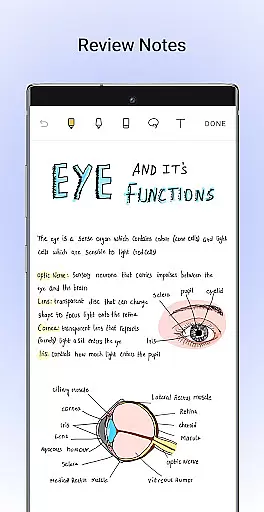 Review Notes
T DONE
EYE AND IT'S
FUNCTIONS
The eye is a sense organ which contains colour (cone cells) and light
cells which are sensitive to light (rod cells)
Optic Nerve: Sensory neurons that carries impulses between the
eye and the brain
Lens: transparent disc that can change
shape to focus light onto the retina
Cornea: transparent lens that refracts
(bends) light as it enters the eye
Iris: controls how much light enters the pupil
sclera pupil eyelid
Iris
Ciliary muscle
Cornea
Iris
Lens
Aqueous humour
Sclera
Medical Rectus Muscle
Lateral Rectus muscle
Retina
choroid
Macula
optic Nerve
Vitreous Humor